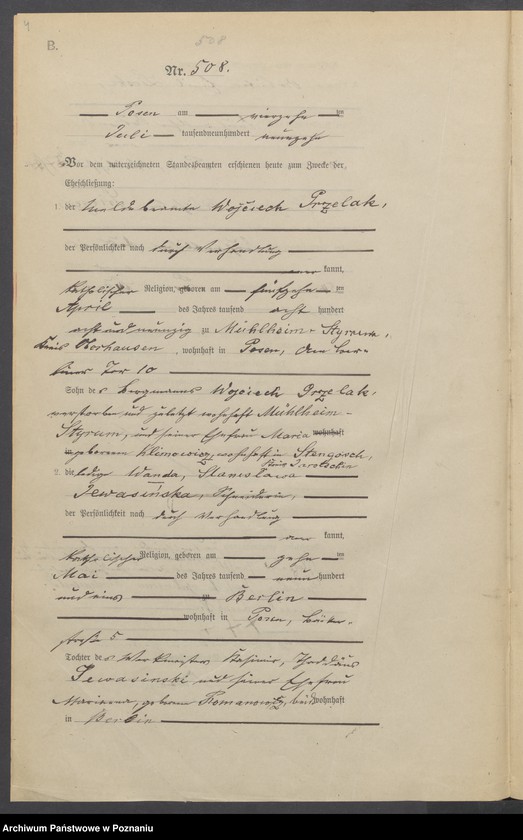 4
B.
508
Nr. 508.
Posen am vierzehn ten
Juli tausendneunhundert neunzehn
Vor dem unterzeichneten Standesbeamten erschienen heute zum Zwecke der
Eheschließung:
1. der Wojciech Przelak,
der Persönlichkeit nach durch Verhandlung
aner kannt,
katholischer Religion, geboren am fünfzehn ten
April des Jahres tausend acht hundert
acht und neunzig zu Mühlheim-Styrum,
Kreis Oberhausen, wohnhaft in Posen, Am Ber-
liner Tor 10
Sohn des Bergmanns Wojciech Przelak,
verstorben und zuletzt wohnhaft Mühlheim-
Styrum, und seiner Ehefrau Maria wohnhaft
geborenen Klimowicz, wohnhaft in Stengosch,
Kreis Jarotschin
2. die ledige Wanda, Stanisława
Jewasińska, Schneiderin,
der Persönlichkeit nach durch Verhandlung
aner kannt,
katholischer Religion, geboren am zehn ten
Mai des Jahres tausend neun hundert
und eins zu Berlin
wohnhaft in Posen, Bäcker-
straße 5
Tochter des Werkmeisters Kasimir, Thaddäus
Jewasinski und seiner Ehefrau
Marianna, geborene Romanowicz, beide wohnhaft
in Berlin
Archiwum Państwowe w Poznaniu